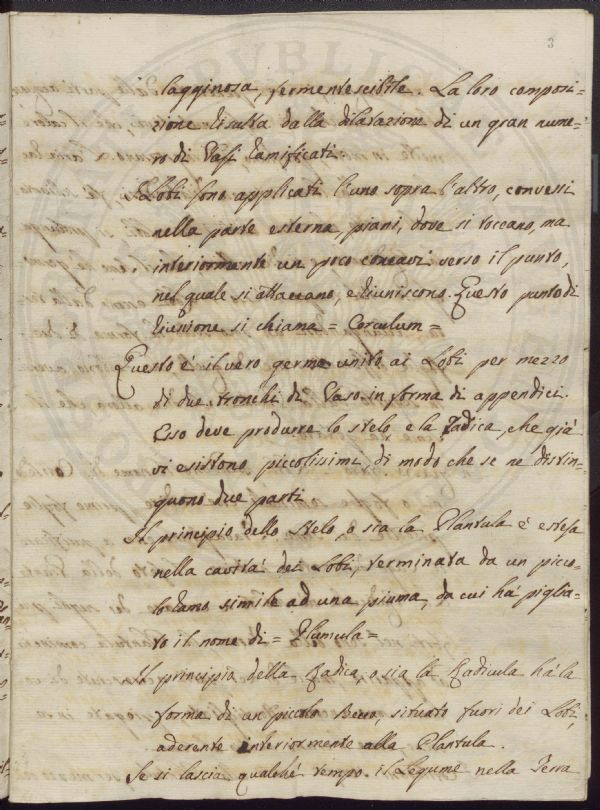 3
laginosa, fermentescibile. La loro composi=
zione risulta dalla dilatazione di un gran nume=
ro di Vasi ramificati.
I Lobi sono applicati l'uno sopra l'altro, convessi
nella parte esterna, piani, dove si toccano, ma
interiormente un poco concavi verso il punto,
nel quale si attaccano, e riuniscono. Questo punto di
riunione si chiama = Corculum =
Questo è il vero germe unito ai Lobi per mezzo
di due tronchi di Vaso in forma di appendici.
Esso deve produrre lo stelo, e la Radica, che già
vi esistono piccolissimi, di modo che se ne distin=
guono due parti
Il principio dello Stelo, o sia la Plantula è estesa
nella cavità dei Lobi, terminata da un picco=
lo ramo simile ad una piuma, da cui ha piglia=
to il nome di = Plumula =
Il principio della Radica, o sia la Radicula ha la
forma di un piccolo Becco, situato fuori dei Lobi,
aderente interiormente alla Plantula.
Se si lascia qualche tempo il Legume nella Terra